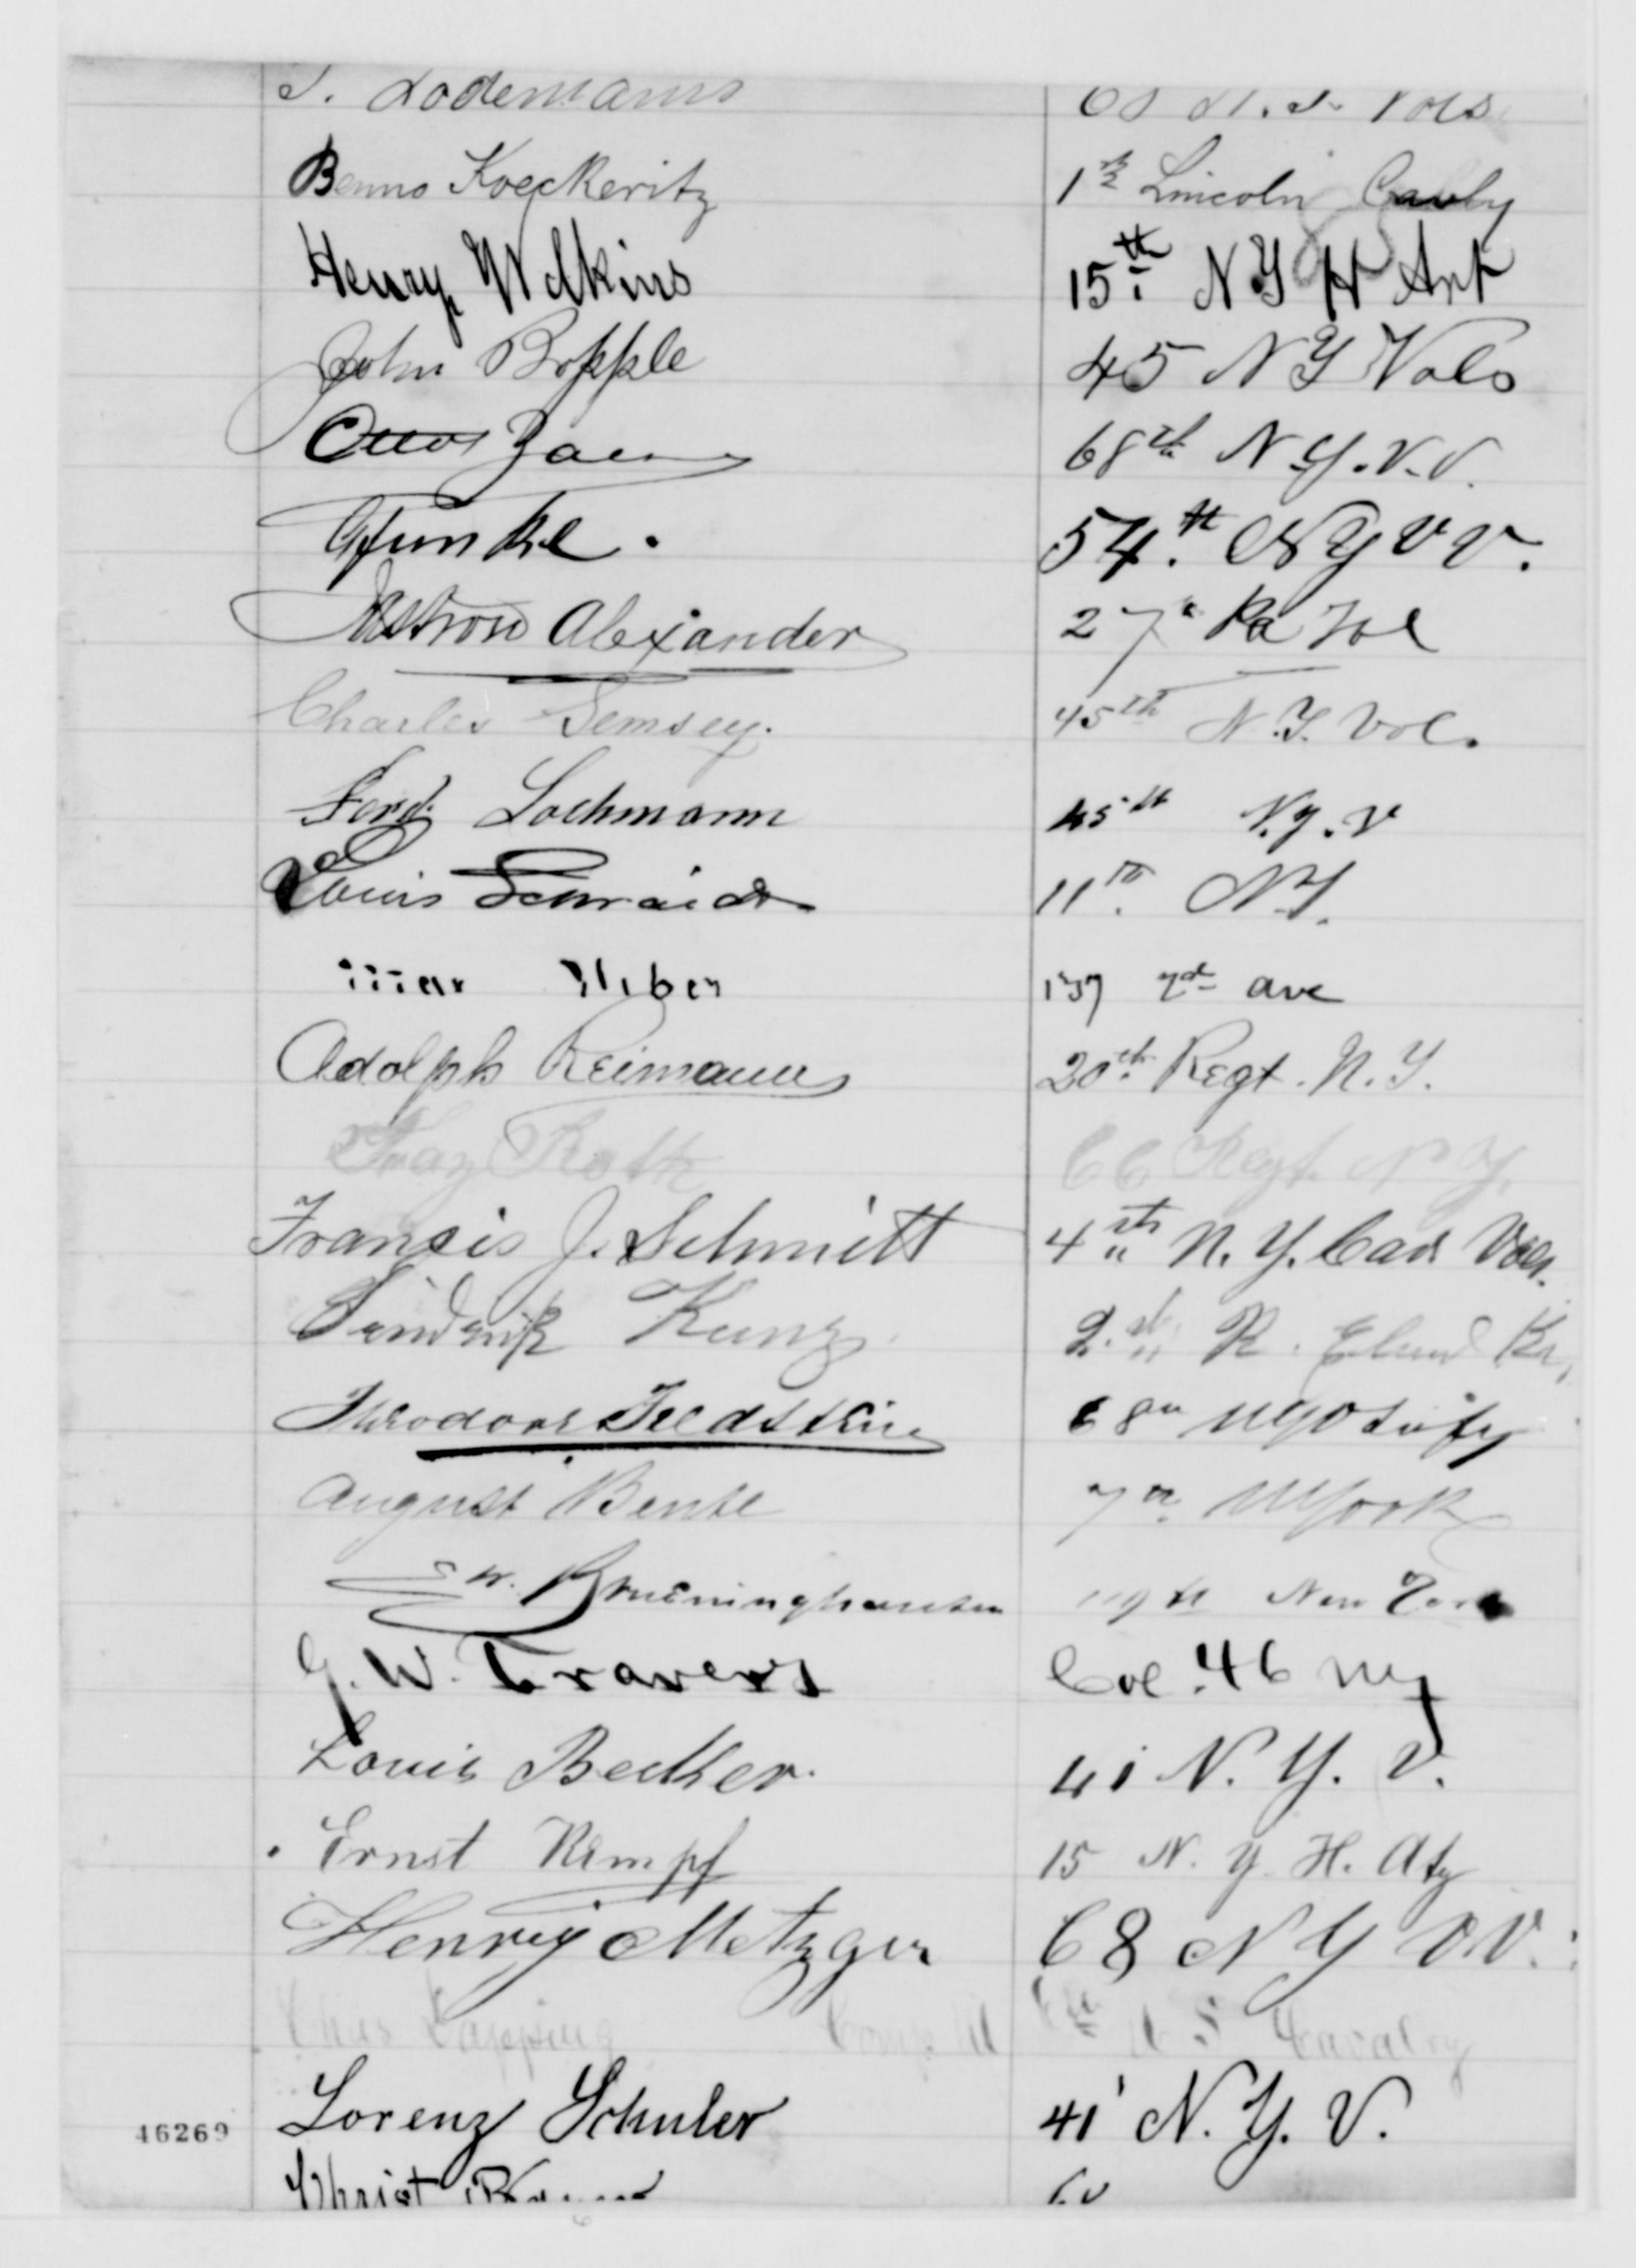 Lodemann 68 N.Y. Vols
Benno Koeckeritz 1st Lincoln Cavly
Henry Wilkins 15th N Y H Art
John Bopple 45 N Y Vols
Otto 68th N.Y.V.V.
GFunke. 54.th N Y V V.
Alexander 27th Pa Vol
Charles Semsey. 45th N.Y. Vol.
Ferd. Lochmann 45th N.Y.V
Louis Schmidt 11th. N.Y.
137 2d ave
Adolph Reimann 20th Regt. N.Y.
Franz Roth 66 Regt. N Y.
Francis J. Schmitt 4th N.Y. Cav Vols.
Kunz
Theodoor 68th
August Bente 7th NYork
Brueninghausen New York
G. W. Travers Col. 46 NY
Louis Becker. 41 N.Y.V.
Ernst Kempf 15 N.Y H. Aty
Henry Metzger 68 N Y V.V.
Chas Topping Comp U S Cavalry
46269 Lorenz Schuler 41' N.Y.V.
Christ